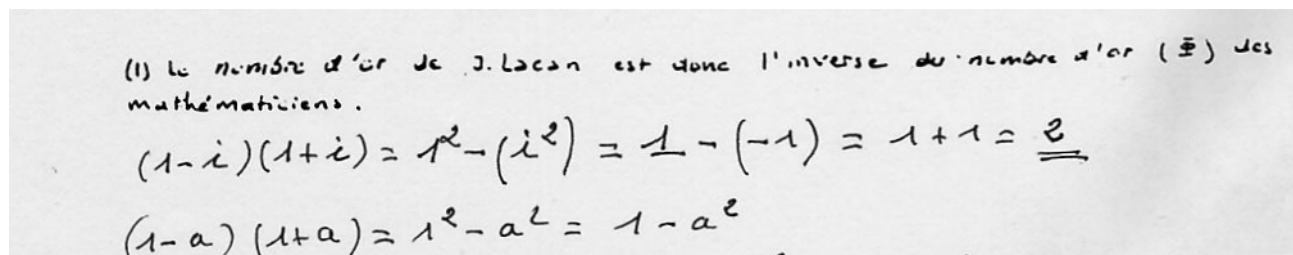 (1) Le nombre d'or de J. Lacan est donc l'inverse du nombre d'or (Φ) des
mathématiciens.
(1-i)(1+i) = 1² - (i²) = 1 - (-1) = 1 + 1 = 2
(1-a)(1+a) = 1² - a² = 1 - a²